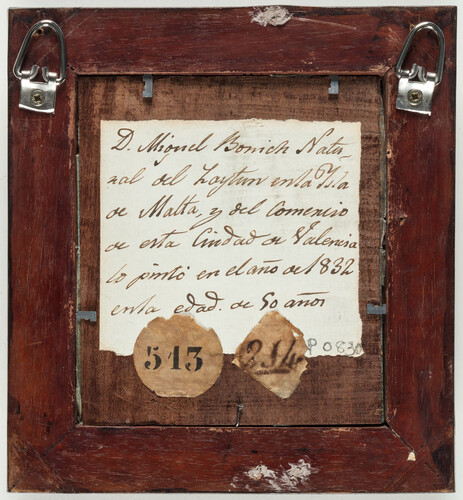 D. Miguel Bonich Natu-
ral del Zaytun en la Ysla
de Malta, y del Comercio
de esta Ciudad de Valencia
lo pintó en el año de 1832
en la edad. de 50 años
513
214
P 0830